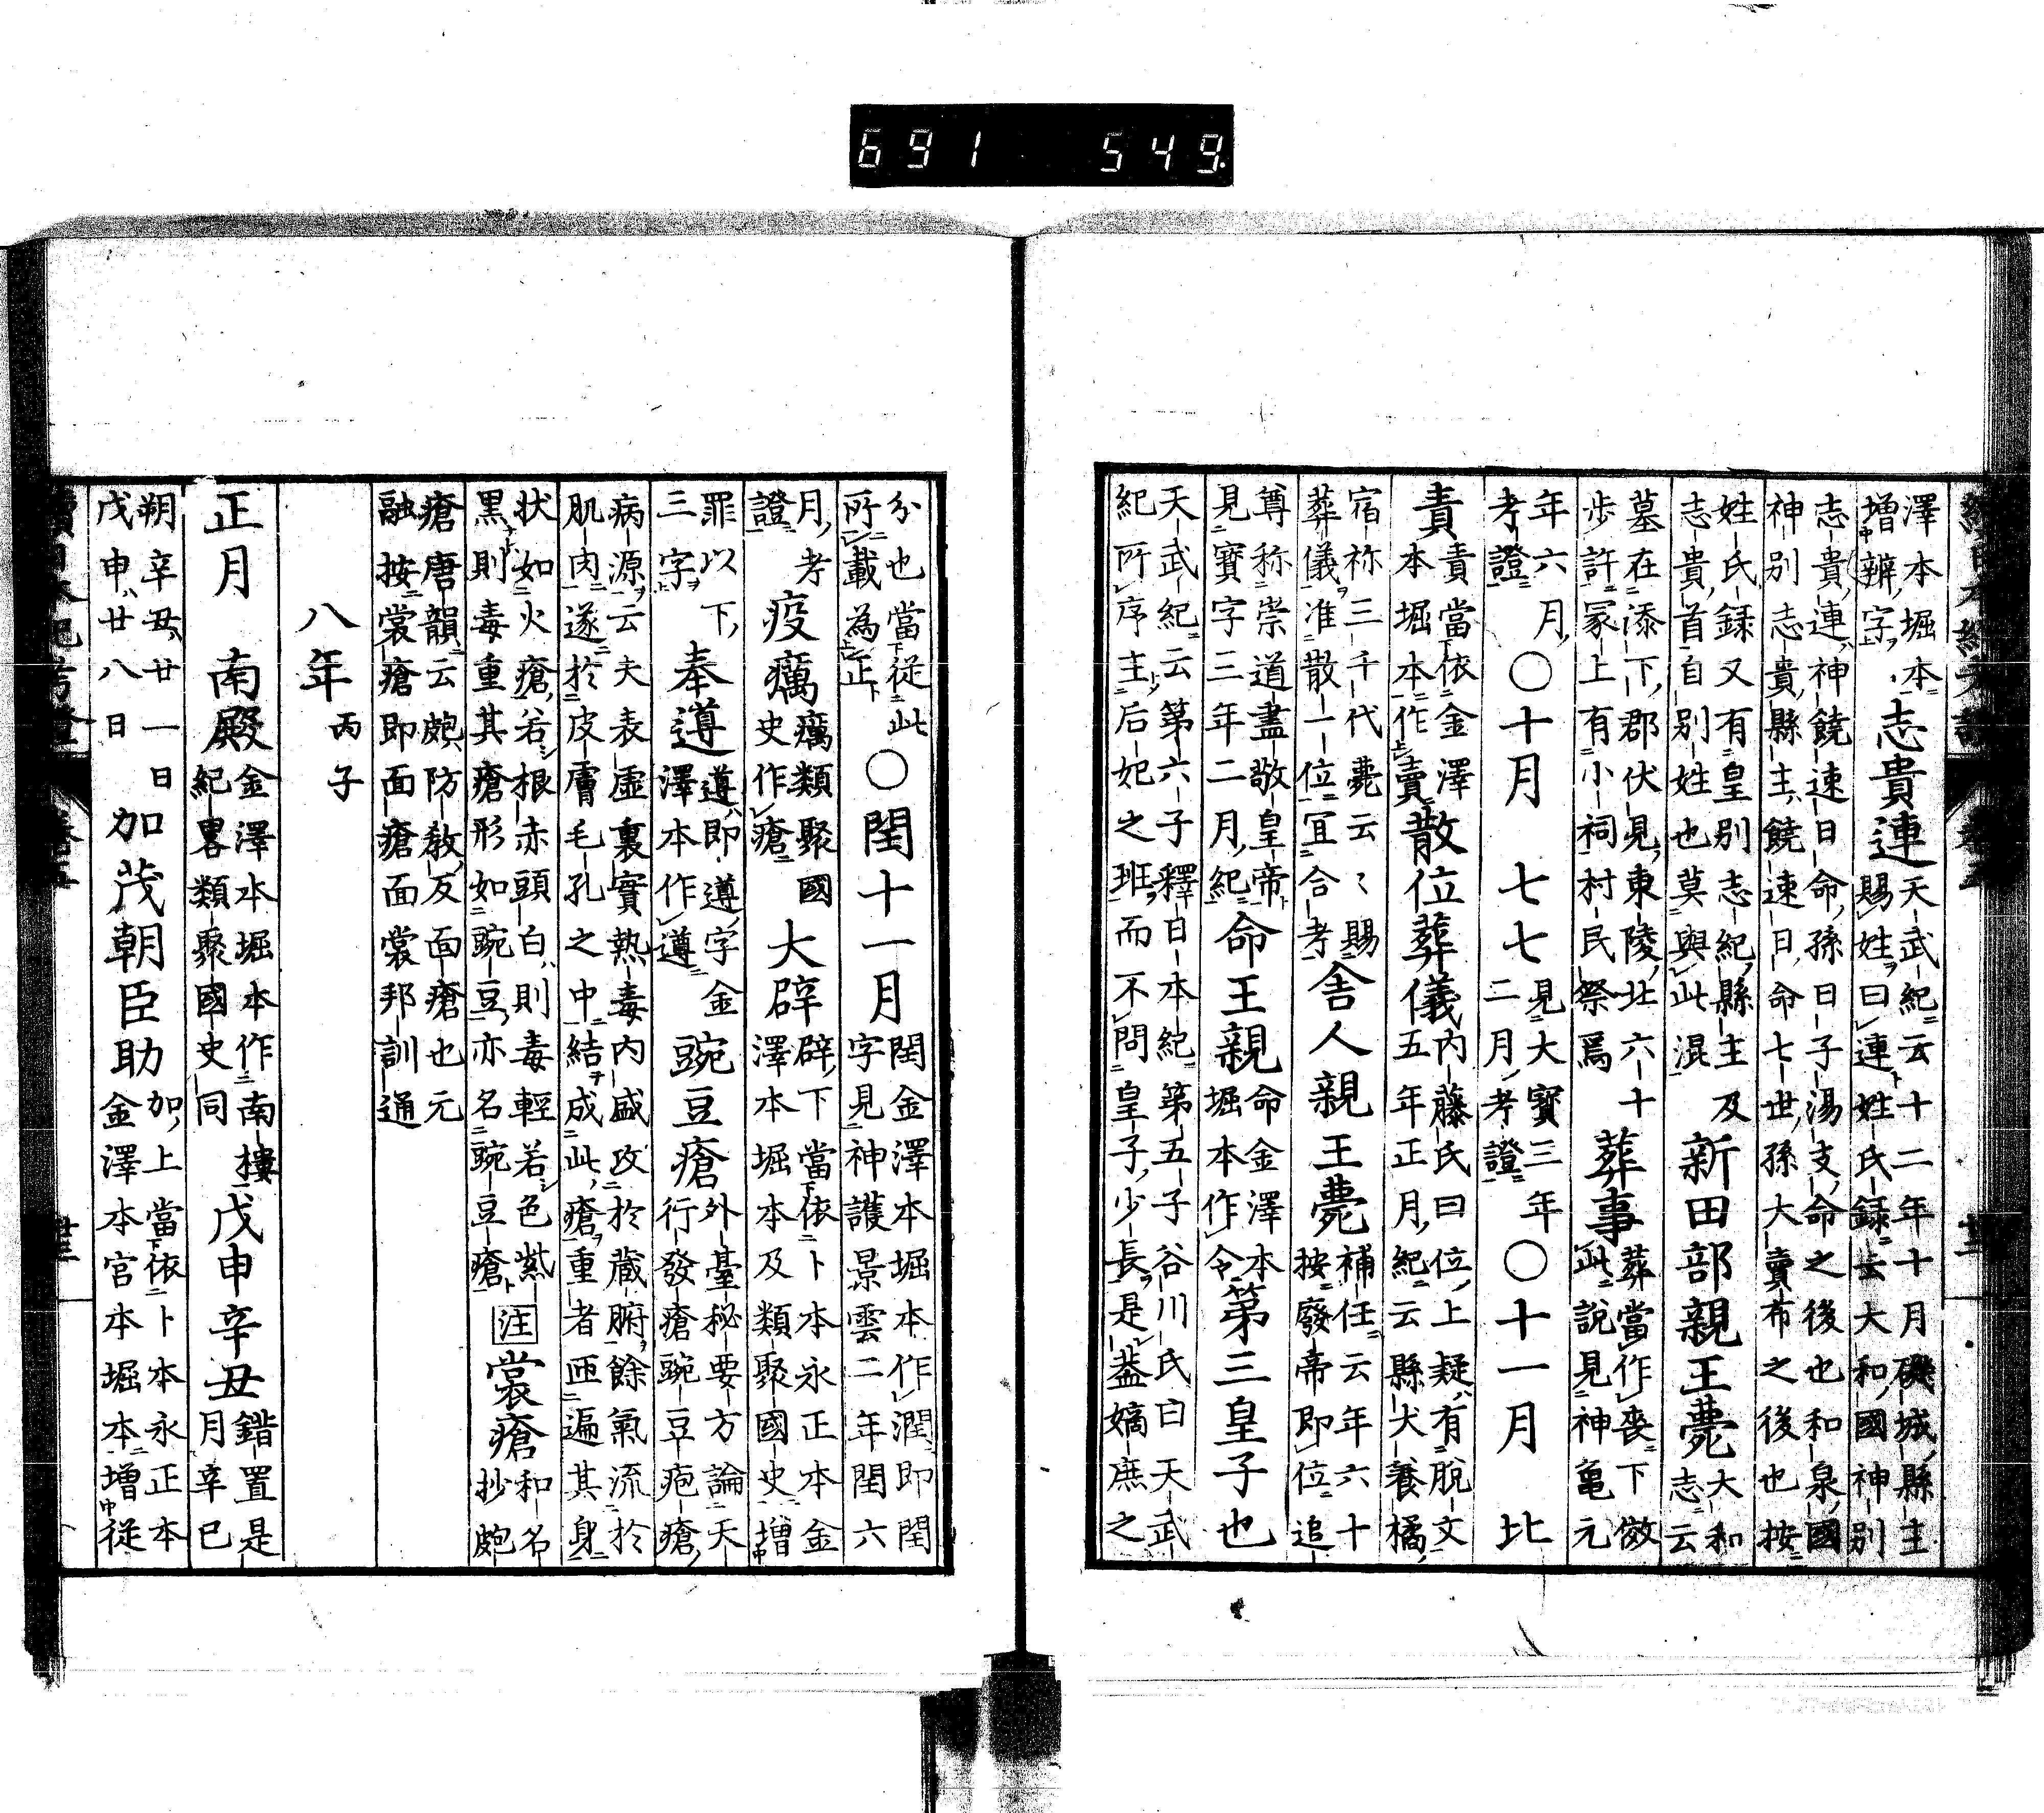 691 549.
澤本堀本増辨字志貴連天武紀云十二年十月磯城縣主賜姓曰連姓氏録云大和國神別
志貴連神饒速日命孫日子湯支命之後也和泉國神別志貴縣主饒速日命七世孫大賣布之後也按
姓氏録又有皇別志紀縣主及志貴首自別姓也莫與此混新田部親王薨大和志云
墓在添下郡伏見東陵北六十歩許冢上有小祠村民祭焉葬事葬當作喪下倣此説見神亀元
年六月考證〇十月七七見大寶三年二月考證〇十一月比
責責當依金澤本堀本作賣散位葬儀内藤氏曰位上疑有脱文五年正月紀云縣犬養橘
宿祢三千代薨云〻賜葬儀准散一位宜合考舎人親王薨補任云年六十按廢帝即位追
尊称崇道盡敬皇帝見寶字三年二月紀命王親命金澤本堀本作令第三皇子也
天武紀云第六子釋日本紀第五子谷川氏曰天武紀所序主后妃之班而不問皇子少長是葢嫡庶之
分也當從此所載為正〇閏十一月閏金澤本堀本作潤即閏字見神護景雲二年閏六
月考證疫癘癘類聚國史作瘡大辟辟下當依卜本永正本金澤本堀本及類聚國史増
罪以下三字奉遵遵即遵字金澤本作遵豌豆瘡外臺秘要方論天行發瘡豌豆疱瘡
病源云夫表虚裏實熱毒内盛攻於蔵腑餘氣流於肌肉遂於皮膚毛孔之中結成此瘡重者匝遍其身
状如火瘡若根赤頭白則毒輕若色紫黒則毒重其瘡形如豌豆亦名豌豆瘡注裳瘡和名抄皰
瘡唐韻云皰防教反面瘡也元融按裳瘡即面瘡面裳邦訓通
八年丙子
正月南殿金澤本堀本作南樓紀畧類聚國史同戊申辛丑錯置是月辛巳
朔辛丑廿一日戊申廿八日加茂朝臣助加上當依卜本永正本金澤本宮本堀本増從